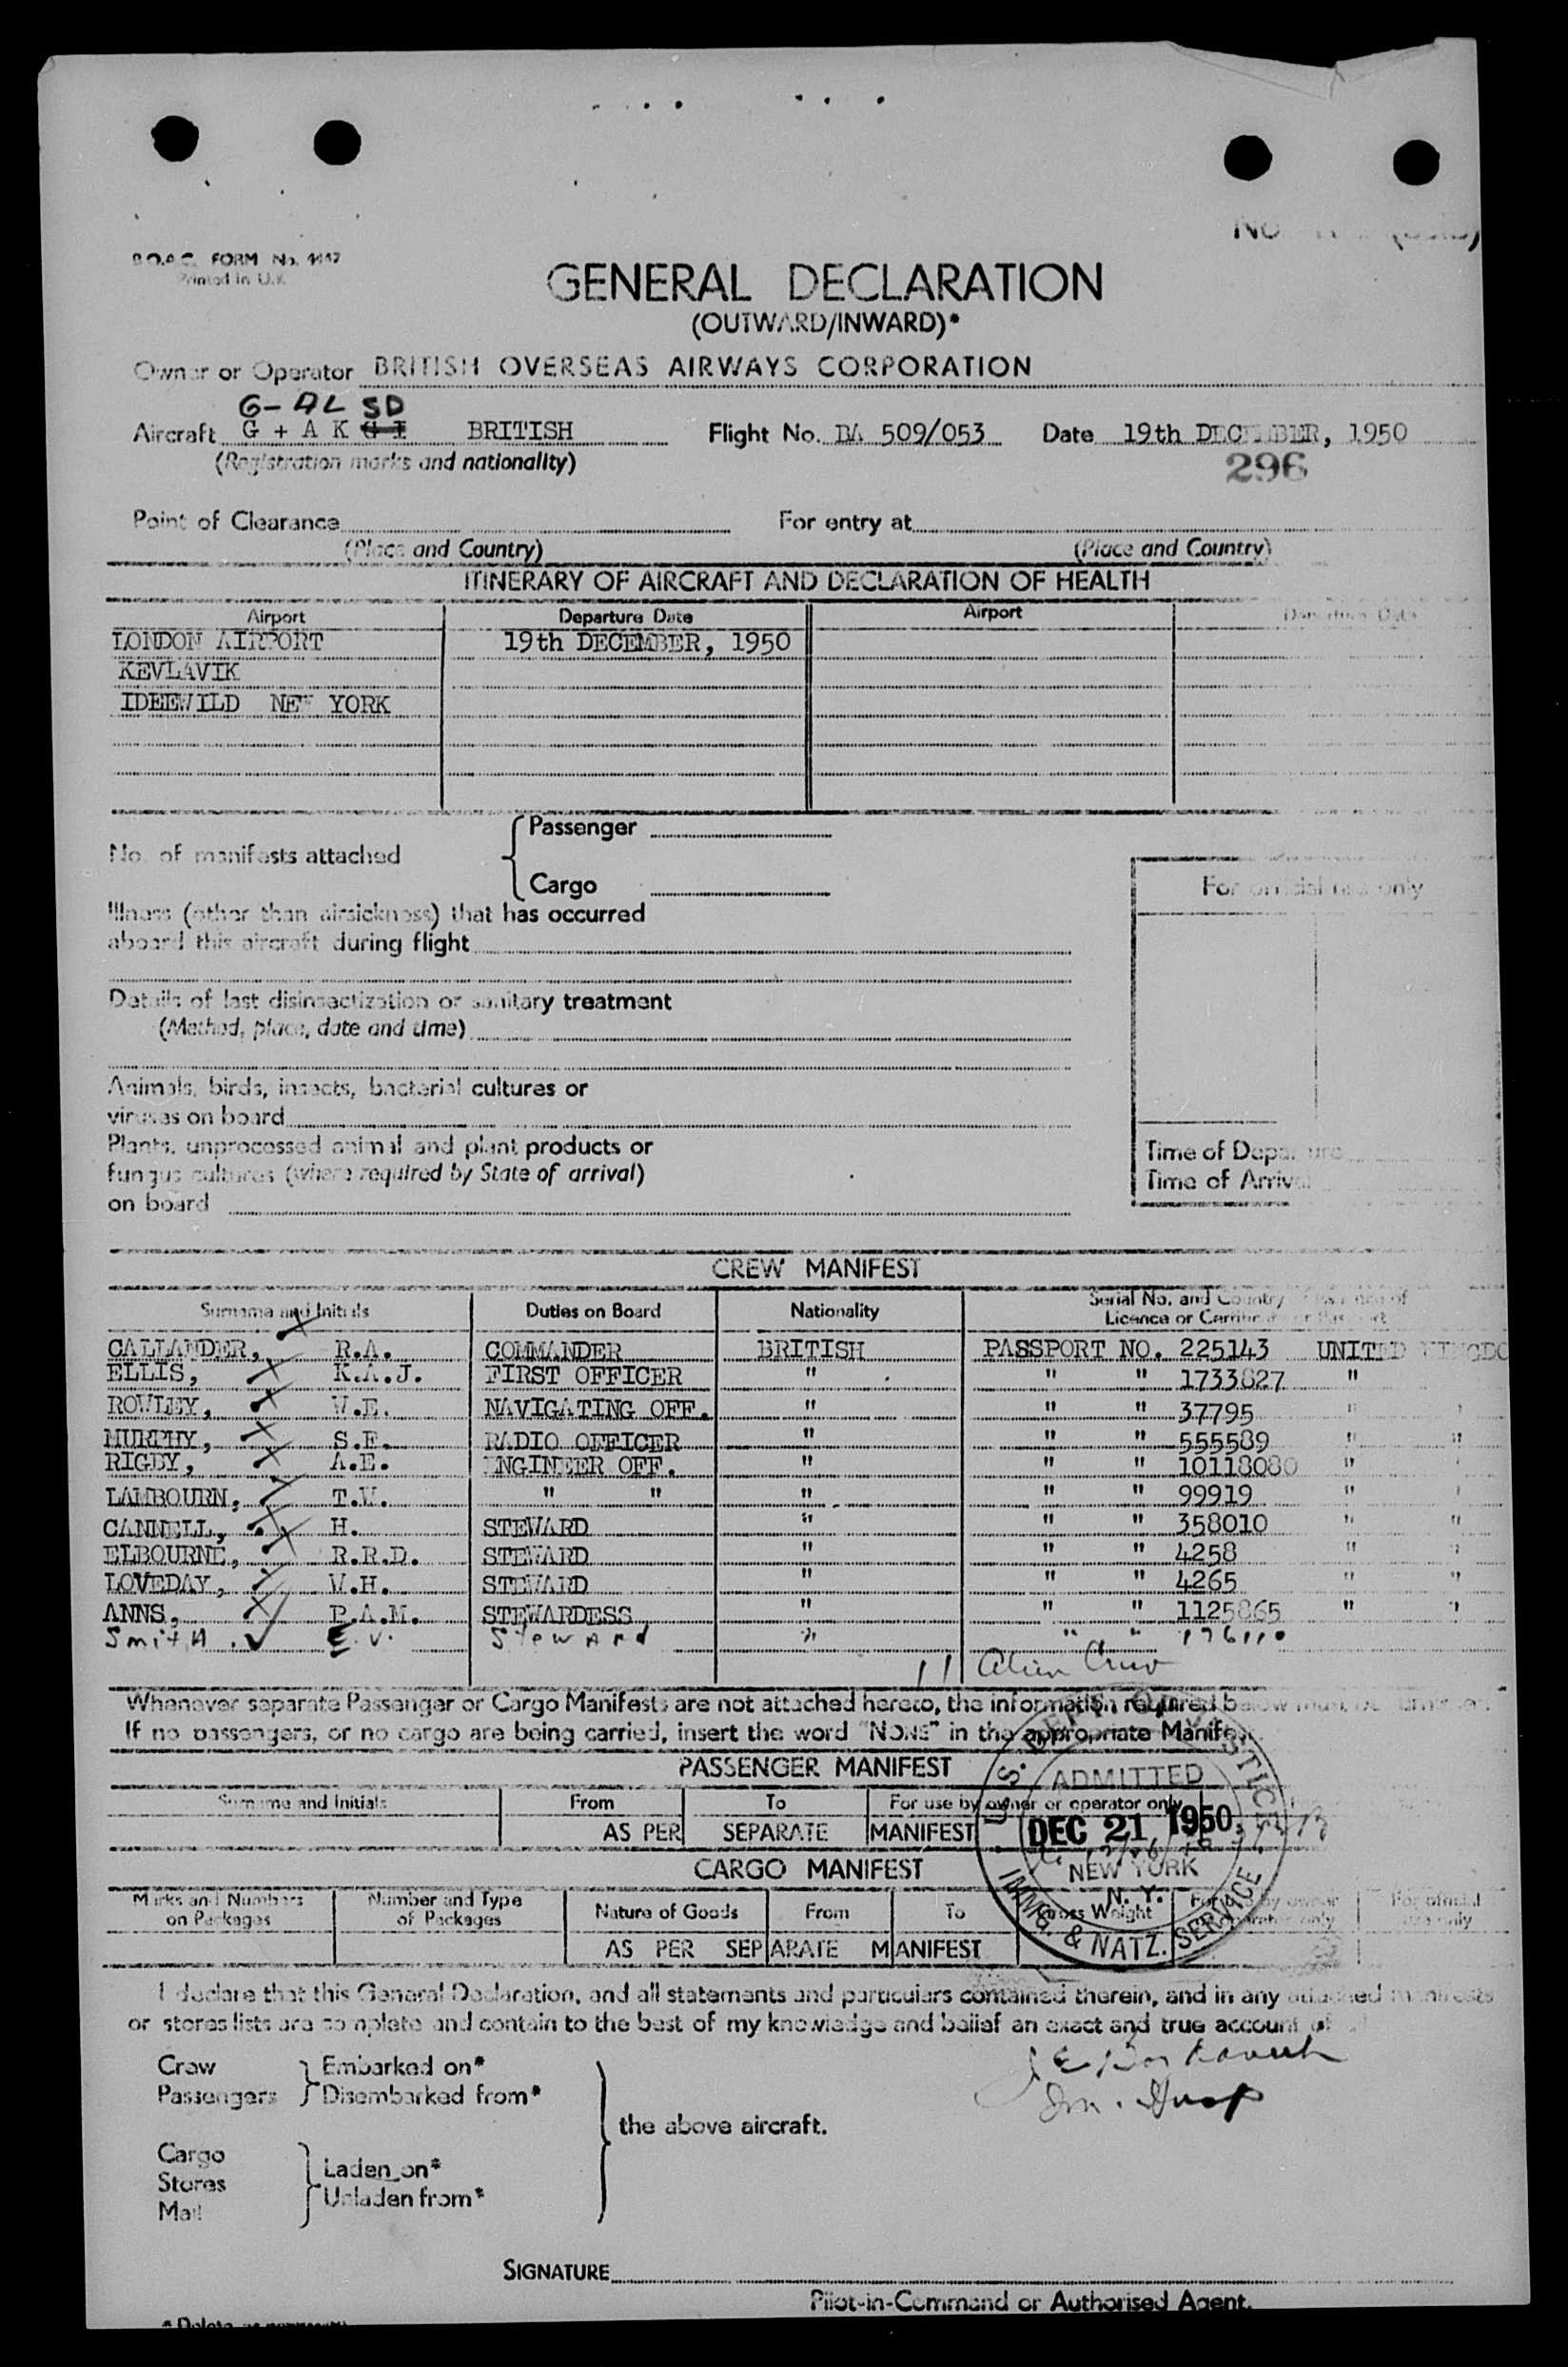 B.O.A.C. FORM No. 4447
Printed in U.K.
GENERAL DECLARATION
(OUTWARD/INWARD)*
Owner or Operator BRITISH OVERSEAS AIRWAYS CORPORATION
G-AL SD
Aircraft G + A K G I BRITISH Flight No. BA 509/053 Date 19th DECEMBER, 1950
(Registration marks and nationality)
296
Point of Clearance For entry at
(Place and Country) (Place and Country)
ITINERARY OF AIRCRAFT AND DECLARATION OF HEALTH
Airport Departure Date Airport Departure Date
LONDON AIRPORT 19th DECEMBER, 1950
KEVLAVIK
IDEEWILD NEW YORK
No. of manifests attached
Passenger
Cargo
For official use only
Illness (other than airsickness) that has occurred
aboard this aircraft during flight
Details of last disinsectization or sanitary treatment
(Method, place, date and time)
Animals, birds, insects, bacterial cultures or
viruses on board
Plants, unprocessed animal and plant products or
fungus cultures (where required by State of arrival)
on board
Time of Departure
Time of Arrival
CREW MANIFEST
Surname and Initials Duties on Board Nationality Serial No. and Country of
Licence or Certificate or Passport
CALLANDER, R.A. COMMANDER BRITISH PASSPORT NO. 225143 UNITED KINGDO
ELLIS, K.A.J. FIRST OFFICER " " " 1733827 "
ROWLEY, W.E. NAVIGATING OFF. " " " 37795 " "
MURPHY, S.F. RADIO OFFICER " " " 555589 " "
RIGBY, A.E. ENGINEER OFF. " " " 10118080 " "
LAMBOURN, T.W. " " " " " 99919 " "
CANNELL, H. STEWARD " " " 358010 " "
ELBOURNE, R.R.D. STEWARD " " " 4258 " "
LOVEDAY, W.H. STEWARD " " " 4265 " "
ANNS, P.A.M. STEWARDESS " " " 1125865 " "
Smith E.V. Steward " " " 176110
11 Alien Crew
Whenever separate Passenger or Cargo Manifests are not attached hereto, the information required below must be
If no passengers, or no cargo are being carried, insert the word "NONE" in the appropriate Manifest
PASSENGER MANIFEST
Surname and Initials From To For use by owner or operator only
AS PER SEPARATE MANIFEST
U.S. DEPT. OF JUSTICE
ADMITTED
DEC 21 1950
NEW YORK
N. Y.
IMMG. & NATZ. SERVICE
CARGO MANIFEST
Marks and Numbers on Packages Number and Type of Packages Nature of Goods From To Gross Weight For use by owner or operator only For official use only
AS PER SEPARATE MANIFEST
I declare that this General Declaration, and all statements and particulars contained therein, and in any attached manifests
or stores lists are complete and contain to the best of my knowledge and belief an exact and true account of
Crew Embarked on*
Passengers Disembarked from*
the above aircraft.
Cargo
Stores Laden on*
Mail Unladen from*
SIGNATURE
Pilot-in-Command or Authorised Agent.
* Delete as necessary